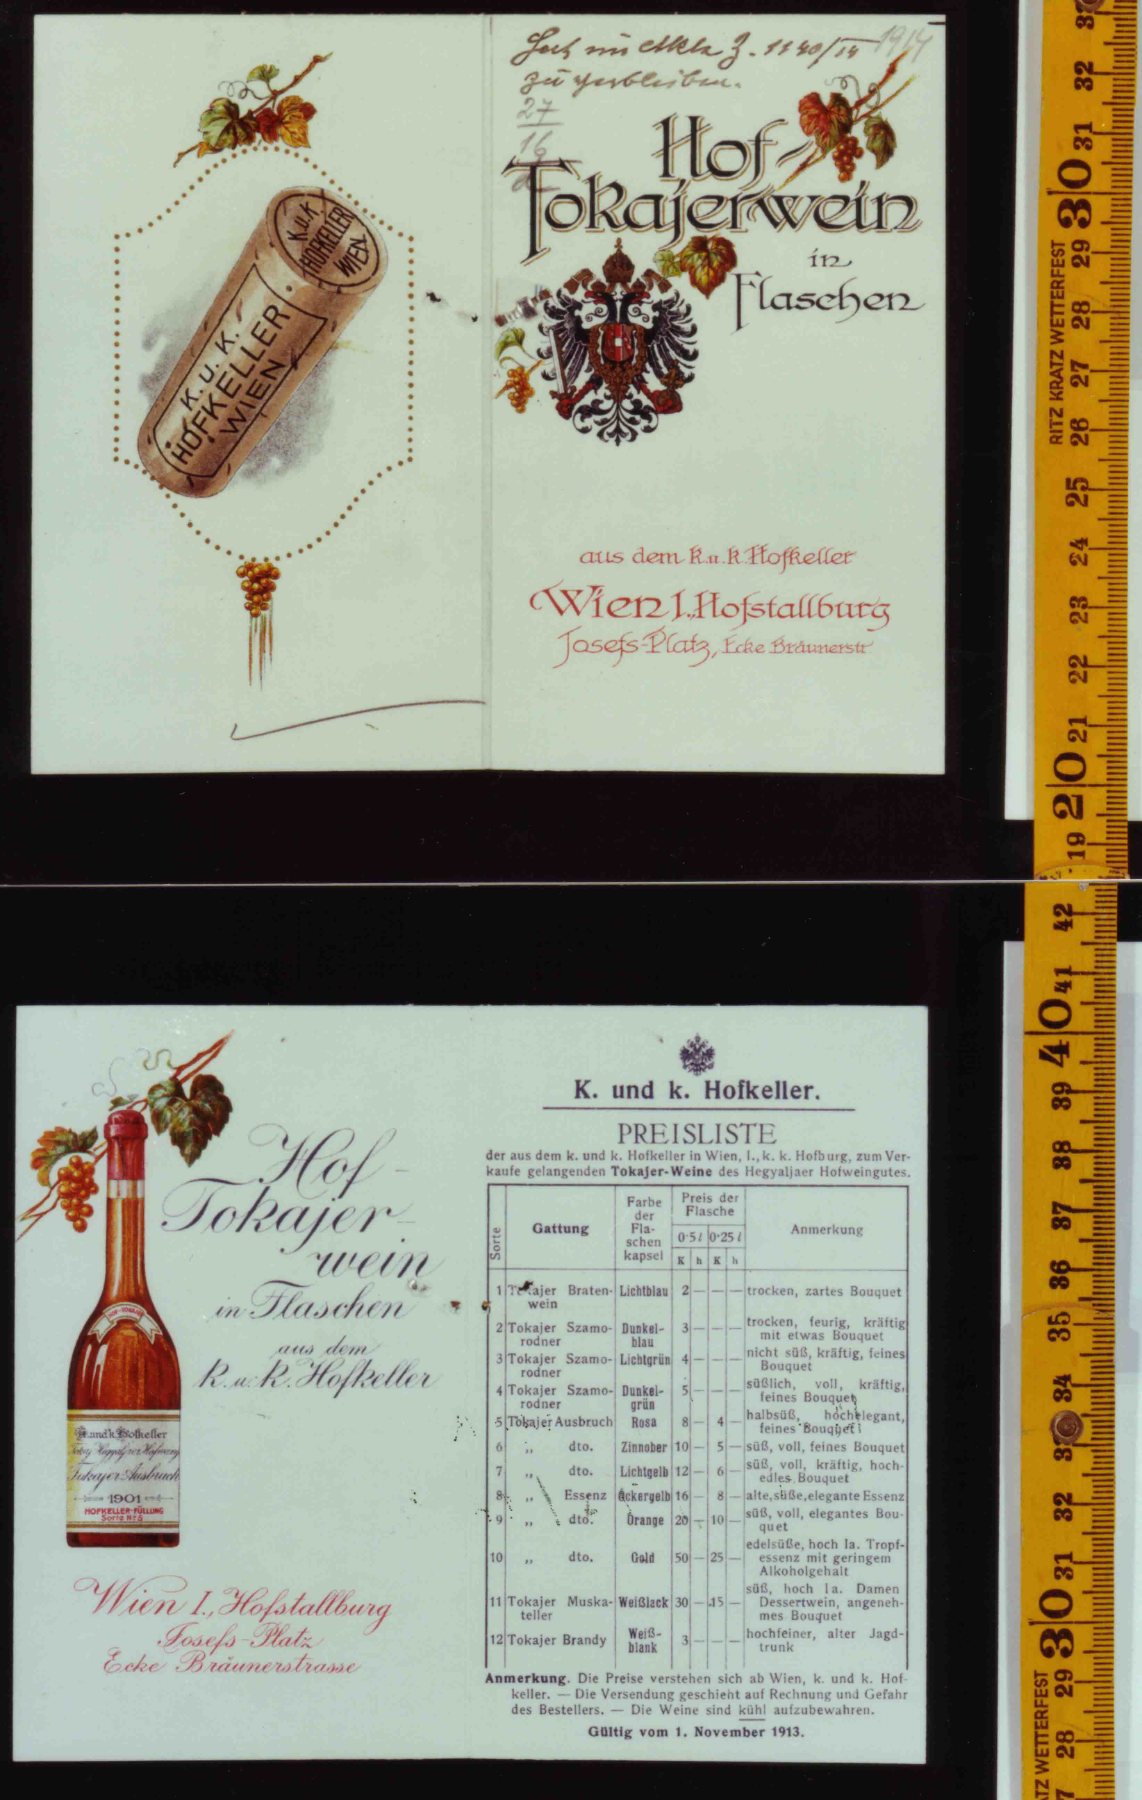 zu verbleiben.
1914
27
16
Hof-
Tokajerwein
in
Flaschen
K.u.K
HOFKELLER
WIEN
K. U. K.
HOFKELLER
WIEN
aus dem k.u.k. Hofkeller
Wien I., Hofstallburg
Josefs-Platz, Ecke Bräunerstr
RITZ KRATZ WETTERFEST
32
31
30
29
28
27
26
25
24
23
22
21
20
19
Hof-
Tokajer-
wein
in Flaschen
aus dem
k. u. k. Hofkeller
HOF-TOKAJER
K. und k. Hofkeller
Tokajer Ausbruch
1901
HOFKELLER-FÜLLUNG
Sorte No 5
Wien I., Hofstallburg
Josefs-Platz
Ecke Bräunerstrasse
K. und k. Hofkeller.
PREISLISTE
der aus dem k. und k. Hofkeller in Wien, I., k. k. Hofburg, zum Ver-
kaufe gelangenden Tokajer-Weine des Hegyaljaer Hofweingutes.
Sorte Gattung Farbe der Fla- schen kapsel Preis der Flasche Anmerkung
0·5 l 0·25 l
K h K h
1 Tokajer Braten- Lichtblau 2 — — — trocken, zartes Bouquet
wein
2 Tokajer Szamo- Dunkel- 3 — — — trocken, feurig, kräftig
rodner blau mit etwas Bouquet
3 Tokajer Szamo- Lichtgrün 4 — — — nicht süß, kräftig, feines
rodner Bouquet
4 Tokajer Szamo- Dunkel- 5 — — — süßlich, voll, kräftig,
rodner grün feines Bouquet
5 Tokajer Ausbruch Rosa 8 — 4 — halbsüß, hochelegant,
feines Bouquet
6 „ dto. Zinnober 10 — 5 — süß, voll, feines Bouquet
7 „ dto. Lichtgelb 12 — 6 — süß, voll, kräftig, hoch-
edles Bouquet
8 „ Essenz Ockergelb 16 — 8 — alte, süße, elegante Essenz
9 „ dto. Orange 20 — 10 — süß, voll, elegantes Bou-
quet
10 „ dto. Gold 50 — 25 — edelsüße, hoch Ia. Tropf-
essenz mit geringem
Alkoholgehalt
11 Tokajer Muska- Weißlack 30 — 15 — süß, hoch 1a. Damen
teller Dessertwein, angeneh-
mes Bouquet
12 Tokajer Brandy Weiß- 3 — — — hochfeiner, alter Jagd-
blank trunk
Anmerkung. Die Preise verstehen sich ab Wien, k. und k. Hof-
keller. — Die Versendung geschieht auf Rechnung und Gefahr
des Bestellers. — Die Weine sind kühl aufzubewahren.
Gültig vom 1. November 1913.
42
41
40
39
38
37
36
35
34
31
30
29
28
TZ WETTERFEST